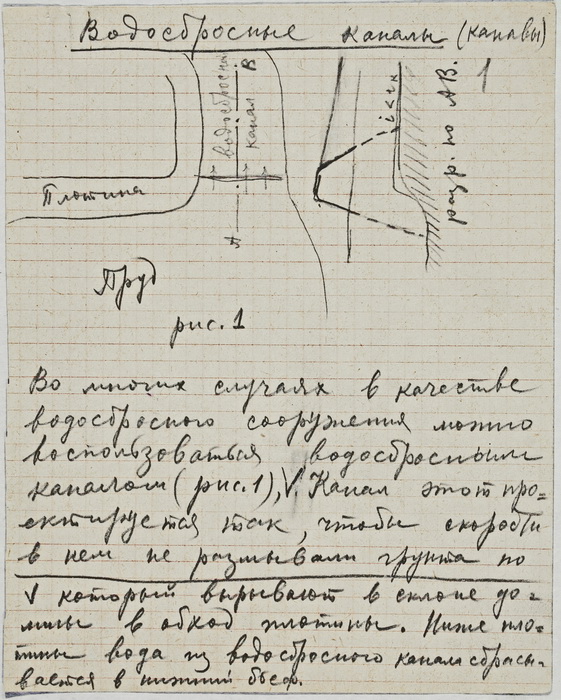 Водосбросные каналы (канавы)
1
водосбросный
канал
В
А
Плотина
i<iк
разр. по АВ.
Пруд
рис. 1
Во многих случаях в качестве
водосбросного сооружения можно
воспользоваться водосбросным
каналом (рис. 1), V. Канал этот про=
ектируется так, чтобы скорости
в нем не размывали грунта по
V который вырывают в склоне до=
лины в обход плотины. Ниже пло=
тины вода из водосбросного канала сбрасы-
вается в нижний бьеф.